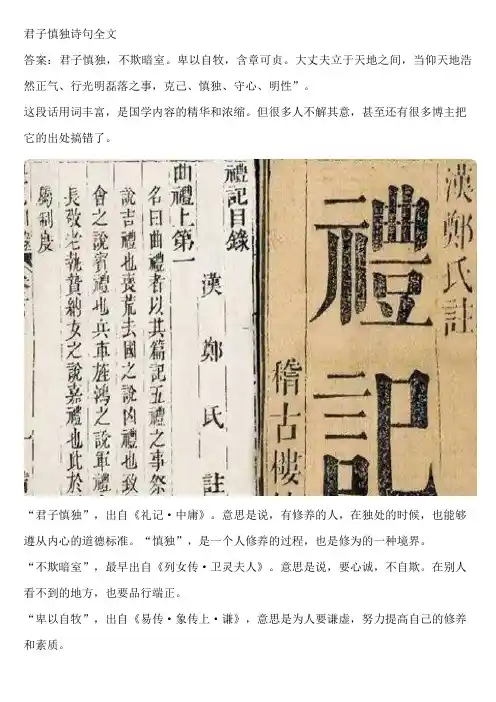 君子慎独诗句全文
答案：君子慎独，不欺暗室。卑以自牧，含章可贞。大丈夫立于天地之间，当仰天地浩
然正气、行光明磊落之事，克己、慎独、守心、明性”。
这段话用词丰富，是国学内容的精华和浓缩。但很多人不解其意，甚至还有很多博主把
它的出处搞错了。
漢鄭氏註
禮記
稽古樓
禮記目錄
漢鄭氏註
曲禮上第一
名曰曲禮者以其篇記五禮之事祭
說吉禮也喪荒去國之說凶禮也致
會之說賓禮也兵車旌鴻之說軍禮
長敬老執贄納女之說嘉禮也此於
屬制度
“君子慎独”，出自《礼记·中庸》。意思是说，有修养的人，在独处的时候，也能够
遵从内心的道德标准。“慎独”，是一个人修养的过程，也是修为的一种境界。
“不欺暗室”，最早出自《列女传·卫灵夫人》。意思是说，要心诚，不自欺。在别人
看不到的地方，也要品行端正。
“卑以自牧”，出自《易传·象传上·谦》，意思是为人要谦虚，努力提高自己的修养
和素质。